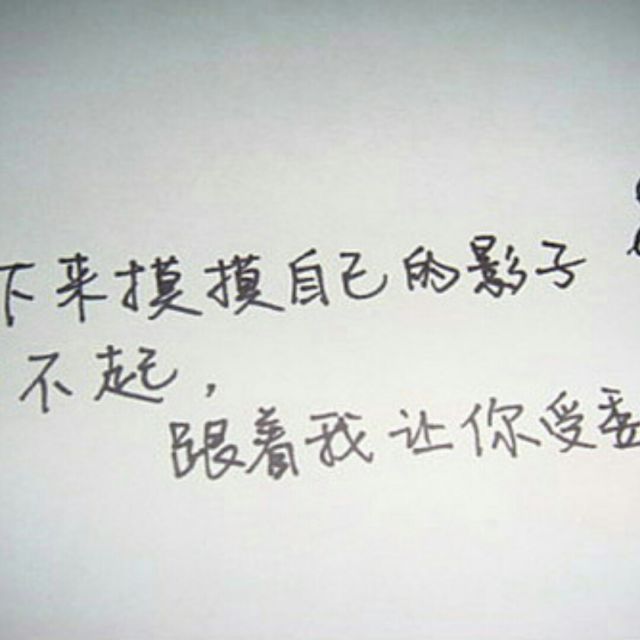 下来摸摸自己的影子
不起，
跟着我让你受委